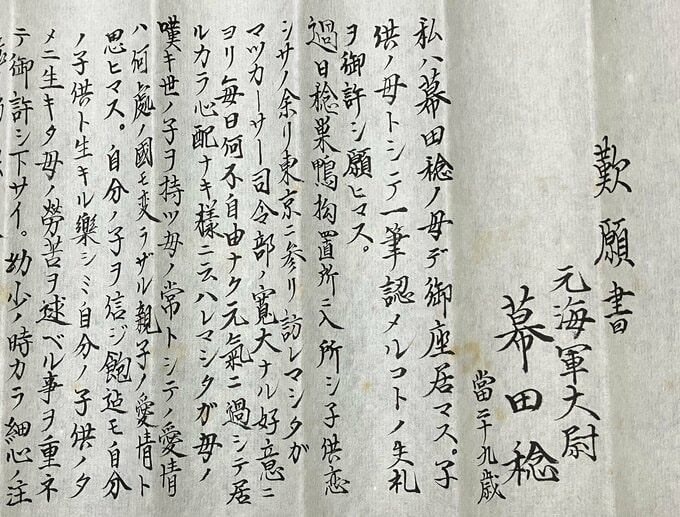 歎願書
元海軍大尉
幕田稔
當二十九歳
私ハ幕田稔ノ母デ御座居マス。子
供ノ母トシテ一筆認メルコトノ失礼
ヲ御許シ願ヒマス。
過日稔巣鴨拘置所ニ入所シ子供恋
シサノ余リ東京ニ参リ訪レマシタガ
マツカーサー司令部ノ寛大ナル好意ニ
ヨリ毎日何不自由ナク元氣ニ過シテ居
ルカラ心配ナキ様ニ云ハレマシタガ母ノ
嘆キ世ノ子ヲ持ツ母ノ常トシテノ愛情
ハ何處ノ國モ変ラザル親子ノ愛情ト
思ヒマス。自分ノ子ヲ信ジ飽迄モ自分
ノ子供ト生キル樂シミ自分ノ子供ノタ
メニ生キタ母ノ勞苦ヲ述ベル事ヲ重ネ
テ御許シ下サイ。幼少ノ時カラ細心ノ注